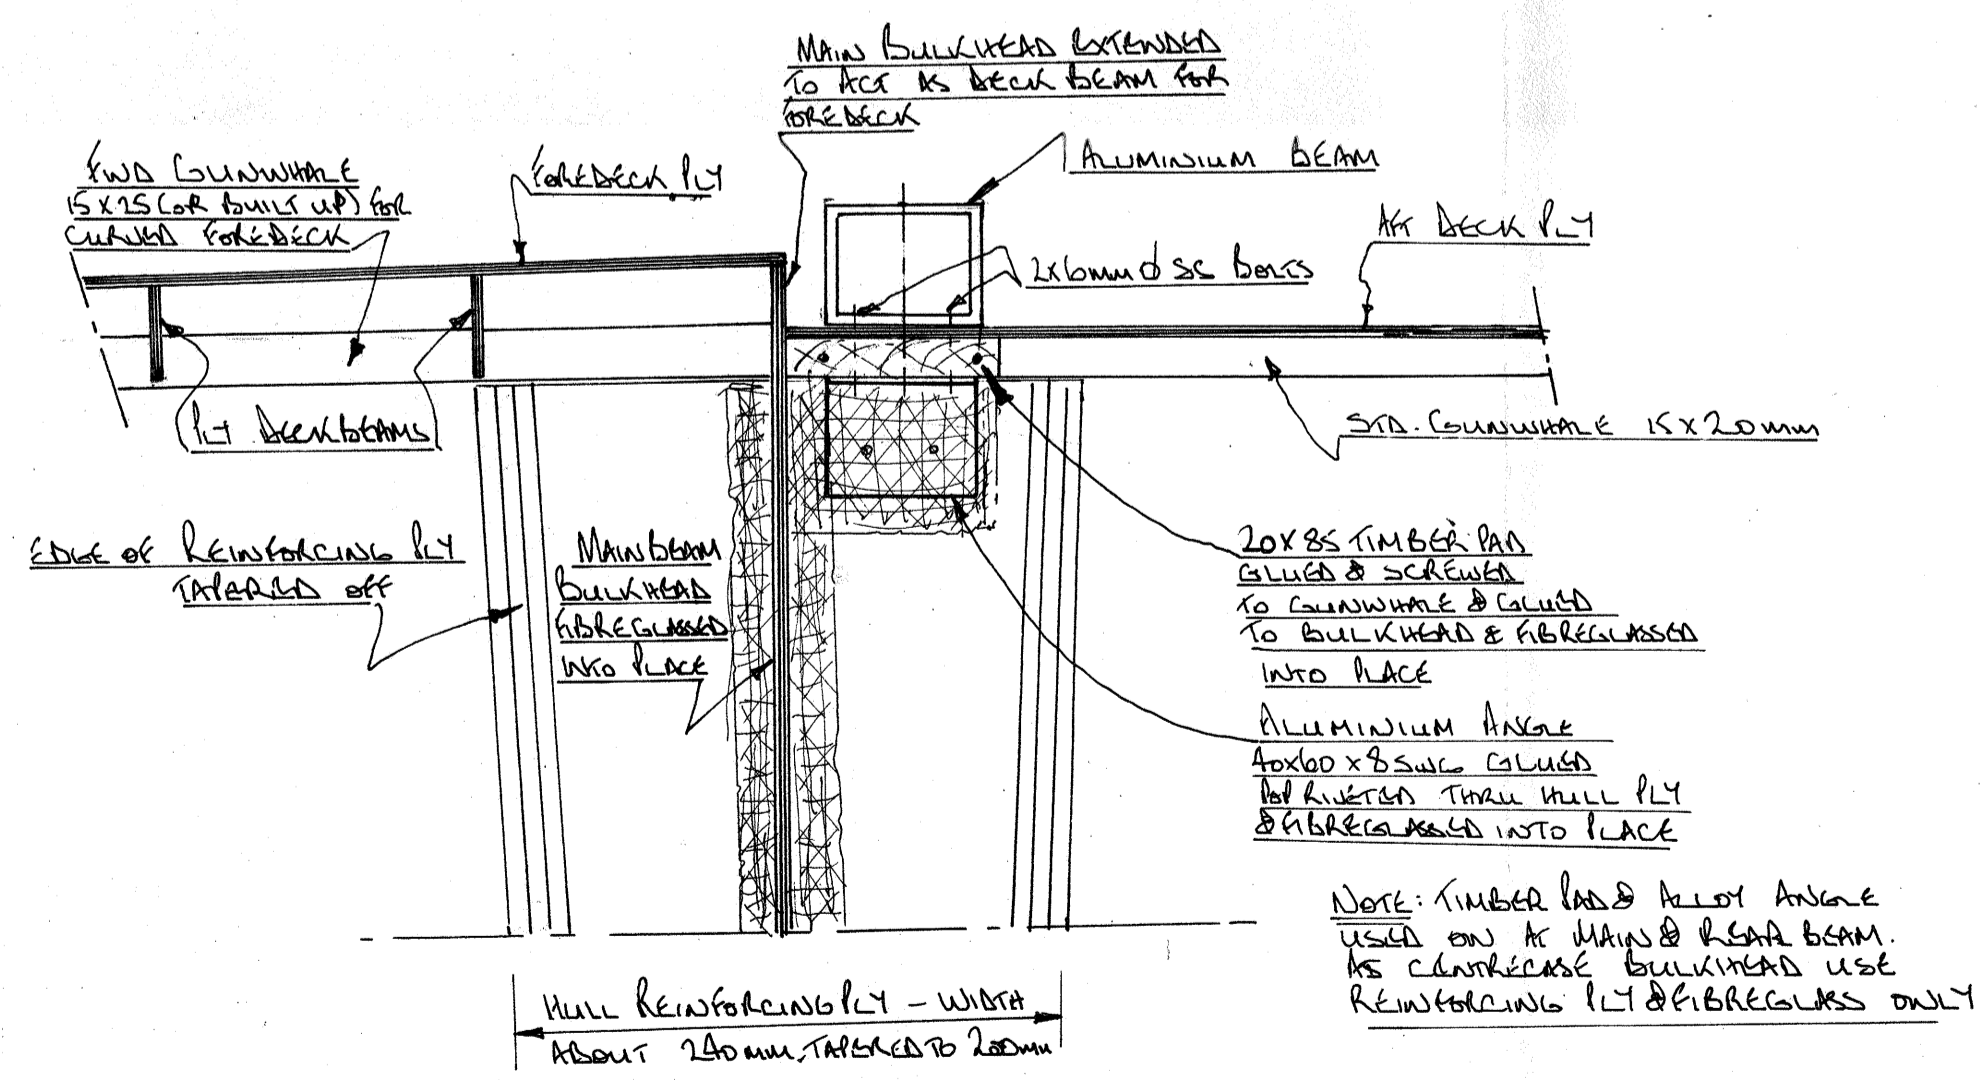 MAIN BULKHEAD EXTENDED
TO ACT AS DECK BEAM FOR
FOREDECK
ALUMINIUM BEAM
FWD GUNWHALE
15 X 25 (OR BUILT UP) FOR
CURVED FOREDECK
FOREDECK PLY
AFT DECK PLY
2X6MM Φ SS BOLTS
PLY DECKBEAMS
STD. GUNWHALE 15 X 20 MM
EDGE OF REINFORCING PLY
TAPERED OFF
MAIN BEAM
BULKHEAD
FIBREGLASSED
INTO PLACE
20 X 85 TIMBER PAD
GLUED & SCREWED
TO GUNWHALE & GLUED
TO BULKHEAD & FIBREGLASSED
INTO PLACE
ALUMINIUM ANGLE
40X60 X 8 SWG GLUED
POP RIVETED THRU HULL PLY
& FIBREGLASSED INTO PLACE
NOTE: TIMBER PAD & ALLOY ANGLE
USED ON AT MAIN & REAR BEAM.
AS CENTRECASE BULKHEAD USE
REINFORCING PLY & FIBREGLASS ONLY
HULL REINFORCING PLY - WIDTH
ABOUT 240 MM, TAPERED TO 200MM